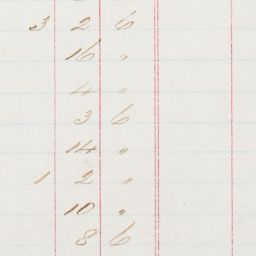 3 2 6
16 "
4 "
3 6
14 "
1 2 "
10 "
8 6